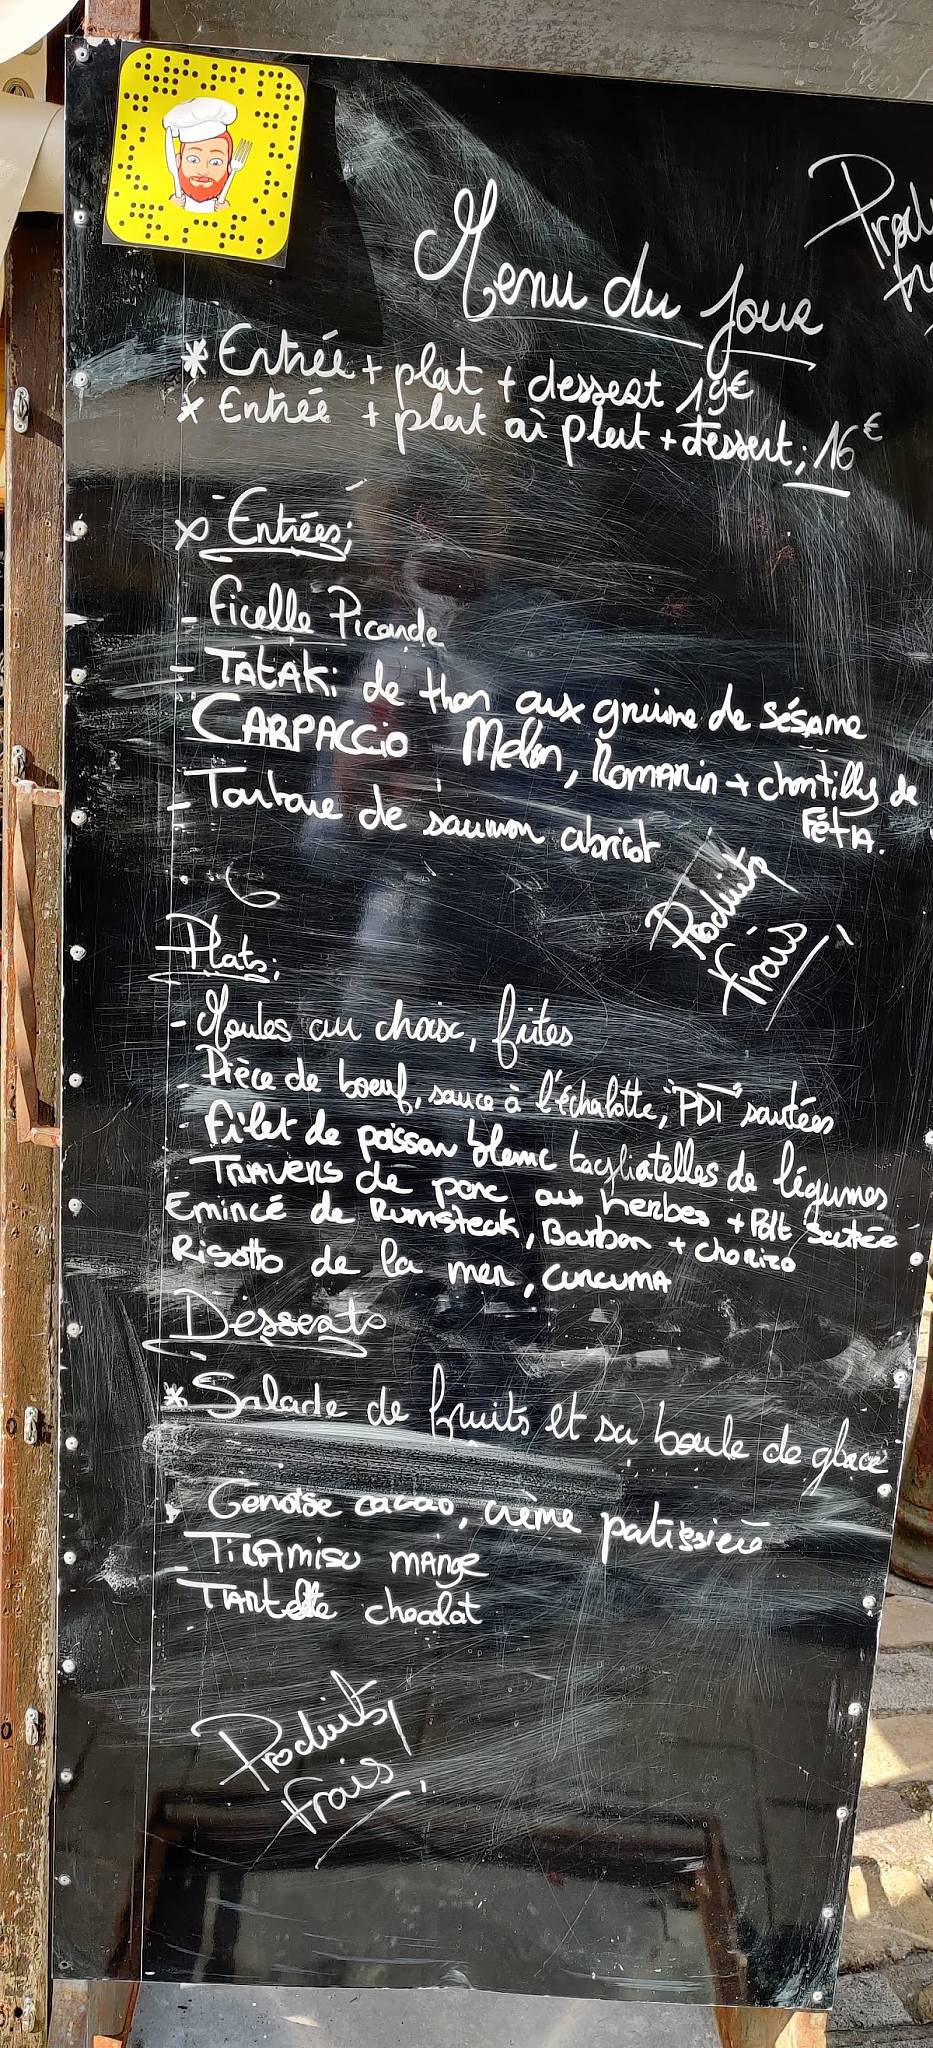 Menu du jour
Produ
* Entrée + plat + dessert 19€
x Entrée + plat où plat + dessert; 16€
x Entrées;
- Ficelle Picarde
- TATAKi de thon aux graine de sésame
- CARPACCIO Melon, ROMARin + chantilly de
FÉTA.
- Tartare de saumon abricot
Produits
frais
Plats;
- Moules au choix, frites
- Pièce de boeuf, sauce à l'échalotte, "PDT" sautées
- Filet de poisson blanc tagliatelles de légumes
TRAVERS de porc aux herbes + Pdt sautée
Emincé de Rumsteak, Barbon + chorizo
Risotto de la mer, CURCUMA
Desserts
* Salade de fruits et sa boule de glace
Génoise cacao, crème patissiere
- TiRAmisu MANGE
- TARTelette chocolat
Produits
frais!